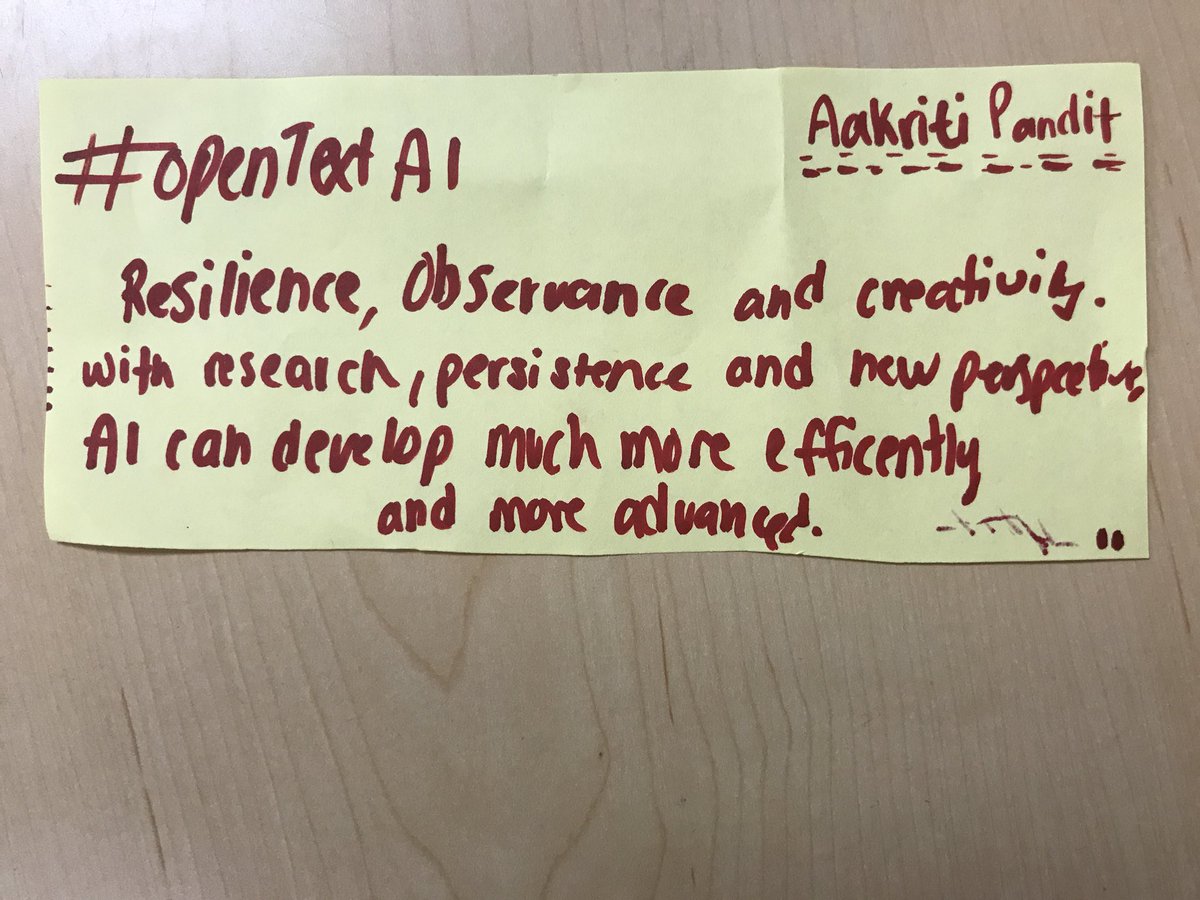 #openText AI
Aakriti Pandit
Resilience, Observance and creativity.
with research, persistence and new perspective,
AI can develop much more efficently
and more advanced.